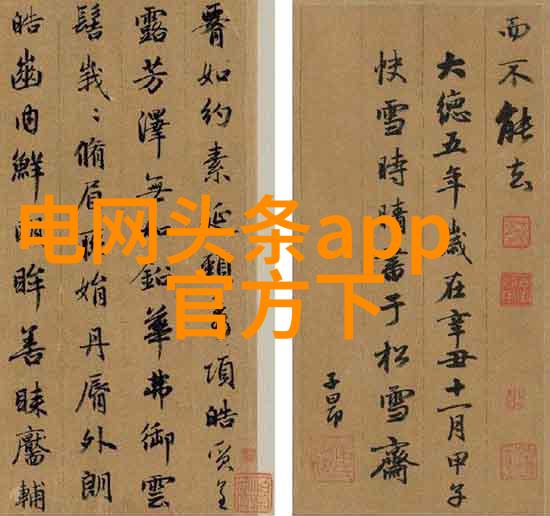 电网头条app
官方下
如約素延頸項皓質呈
露芳澤無加鉛華弗御雲
髻峩〻脩眉聯娟丹脣外朗
皓齒内鮮明眸善睞靨輔
而不能去
大德五年歲在辛丑十一月甲子
快雪時晴書于松雪齋
子昂